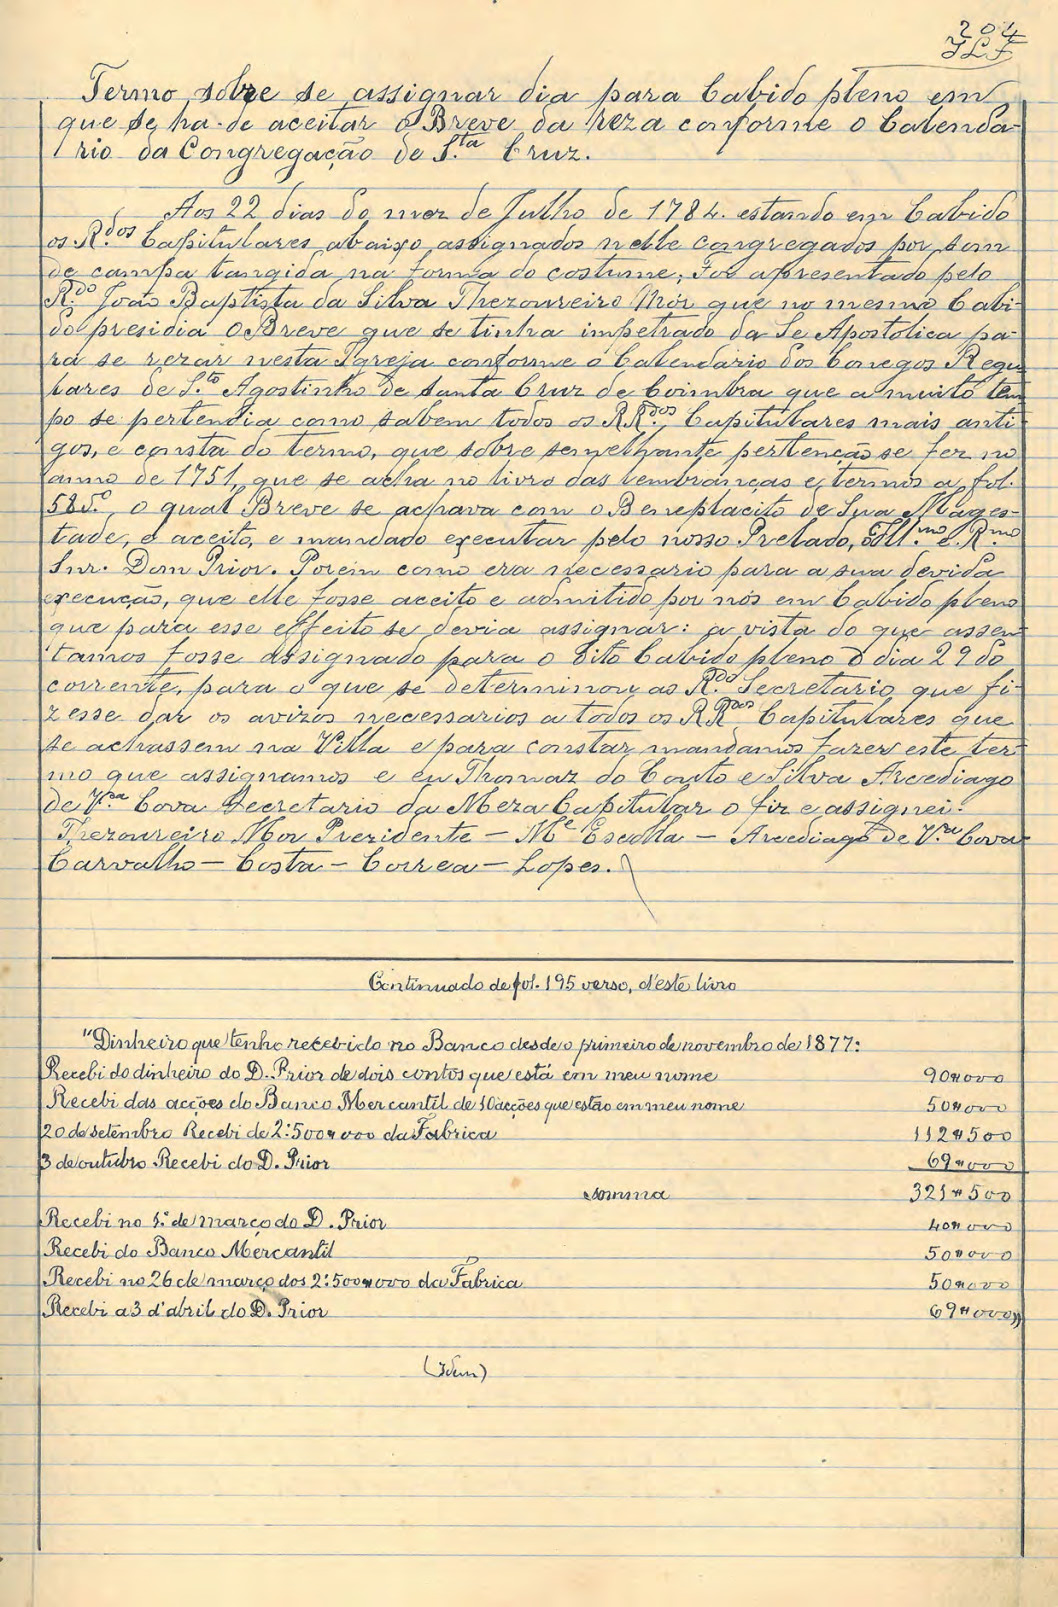 204
JLF
Termo, sobre se assignar dia para Cabido pleno em
que se ha-de aceitar o Breve da reza conforme o Calenda-
rio da Congregação de S.ta Cruz.
Aos 22 dias do mez de Julho de 1784. estando em Cabido
os R.dos Capitulares abaixo assignados nelle congregados por som
de campa tangida na forma do costume; Foi apresentado pelo
R.do João Baptista da Silva Thezoureiro Mór que no mesmo Cabi-
do presidia o Breve que se tinha impetrado da Se Apostolica pa-
ra se rezar nesta Igreja conforme o Calendario dos Conegos Regu-
lares de S.to Agostinho de Santa Cruz de Coimbra que a muito tem-
po se pertendia como sabem todos os RR.dos Capitulares mais anti-
gos, e consta do termo, que sobre semelhante pertenção se fez no
anno de 1751, que se acha no livro das lembranças e termos a fol.
58 o qual Breve se achava com o Beneplacito de Sua Mages-
tade, e aceito, e mandado executar pelo nosso Prelado, Ill.mo e R.mo
Snr. Dom Prior. Porem como era necessario para a sua devida
execução, que elle fosse aceito e admitido por nós em Cabido pleno
que para esse effeito se devia assignar: a vista do que assen-
tamos fosse assignado para o dito Cabido pleno o dia 29 do
corrente, para o que se determinou ao R.do Secretario, que fi-
zesse dar os avizos necessarios a todos os RR.dos Capitulares que
se achassem na Villa e para constar mandamos fazer este ter-
mo que assignamos e eu Thomaz do Couto e Silva Arcediago
de V.a Cova Secretario da Meza Capitular o fiz e assignei.
Thezoureiro Mor Prezidente — M.e Escolla — Arcediago de V.a Cova
Carvalho — Costa — Correa — Lopes.
Continuado de fol. 195 verso, d'este livro
"Dinheiro que tenho recebido no Banco desde o primeiro de novembro de 1877:
Recebi do dinheiro do D. Prior de dois contos que está em meu nome 90#000
Recebi das acções do Banco Mercantil de 10 acções que estão em meu nome 50#000
20 de setembro Recebi de 2:500#000 da Fabrica 112#500
3 de outubro Recebi do D. Prior 69#000
somma 321#500
Recebi no 1.º de março do D. Prior 40#000
Recebi do Banco Mercantil 50#000
Recebi no 26 de março dos 2:500#000 da Fabrica 50#000
Recebi a 3 d'abril do D. Prior 69#000"
(Idem)